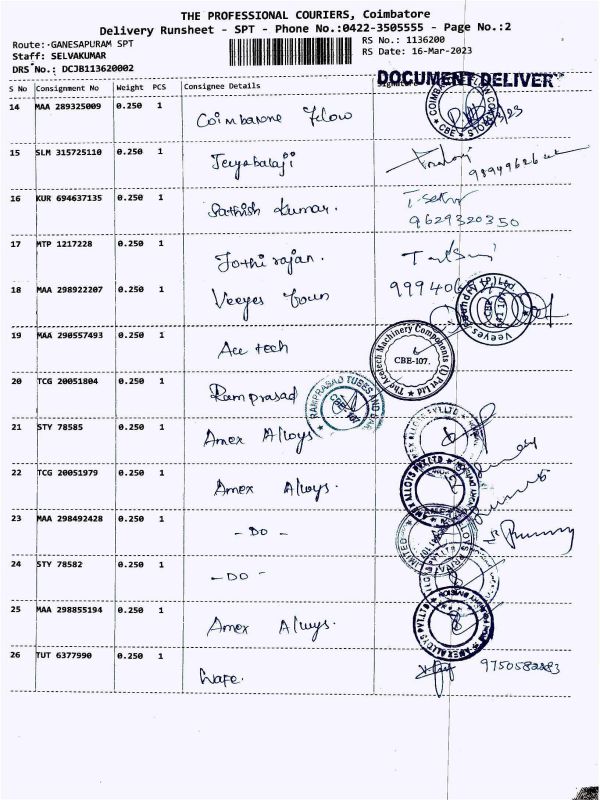 THE PROFESSIONAL COURIERS, Coimbatore
Delivery Runsheet - SPT - Phone No.:0422-3505555 - Page No.:2
Route:-GANESAPURAM SPT
RS No.: 1136200
Staff: SELVAKUMAR
RS Date: 16-Mar-2023
DRS No.: DCJB113620002
DOCUMENT DELIVER
S No Consignment No Weight PCS Consignee Details
14 MAA 289325009 0.250 1 Coimbatore
15 SLM 315725110 0.250 1 Jeyabalaji
16 KUR 694637135 0.250 1 Sathish Kumar. T-Sekar
9629320350
17 MTP 1217228 0.250 1 Jothi rajan.
18 MAA 298922207 0.250 1 Veeyes Foun
19 MAA 290557493 0.250 1 Ace tech The Acetech Machinery Components (I) Pvt Ltd CBE-107.
20 TCG 20051804 0.250 1 Ramprasad RAMPRASAD TUBES AND
21 STY 78585 0.250 1 Amex Alloys
22 TCG 20051979 0.250 1 Amex Alloys. AMEX ALLOYS PVT.LTD
23 MAA 298492428 0.250 1 - DO -
24 STY 78582 0.250 1 - DO -
25 MAA 298855194 0.250 1 Amex Alloys. AMEX ALLOYS PVT.LTD
26 TUT 6377990 0.250 1